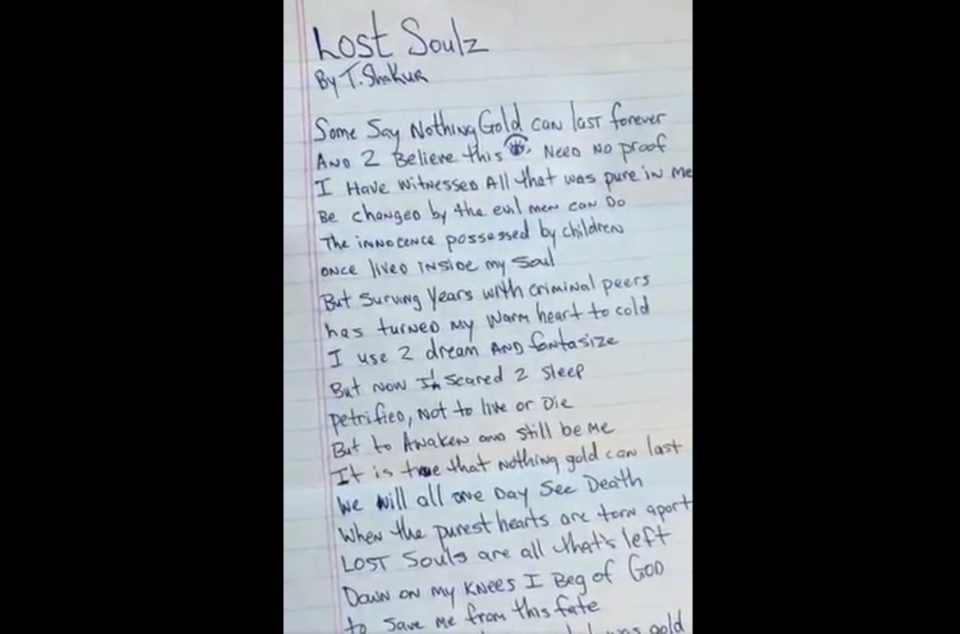 Lost Soulz
By T. Shakur
Some Say Nothing Gold can last forever
AND 2 Believe this 👁 NEED NO proof
I HAVE WITNESSED All that was pure in me
Be changed by the evil men can Do
The innocence possessed by children
once lived inside my soul
But surving years with criminal peers
has turned my warm heart to cold
I use 2 dream AND fantasize
But now I'm scared 2 sleep
petrified, Not to live or Die
But to Awaken and still be me
It is true that nothing gold can last
We will all one Day See Death
When the purest hearts are torn apart
LOST Souls are all that's left
Down on my KNEES I Beg of GOD
to save me from this fate
was gold